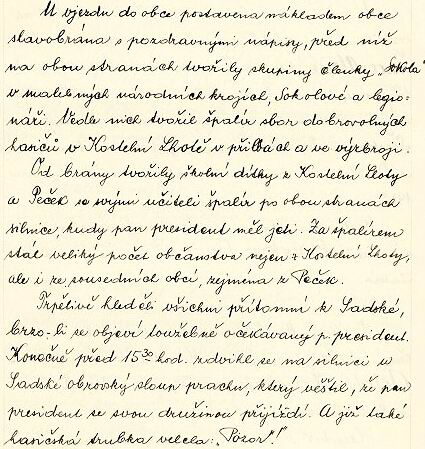 U vjezdu do obce postavena nákladem obce
slavobrána s pozdravnými nápisy, před níž
na obou stranách tvořily skupiny členky „Sokola"
v malebných národních krojích, Sokolové a legio-
náři. Vedle nich tvořil špalír sbor dobrovolných
hasičů v Kostelní Lhotě v přilbách a ve výzbroji.
Od brány tvořily školní dítky z Kostelní Lhoty
a Peček se svými učiteli špalír po obou stranách
silnice, kudy pan president měl jeti. Za špalírem
stál veliký počet občanstva nejen z Kostelní Lhoty,
ale i ze sousedních obcí, zejména z Peček.
Trpělivě hleděli všichni přítomní k Sadské,
brzo-li se objeví toužebně očekávaný p. president.
Konečně před 15³⁰ hod. zdvihl se na silnici u
Sadské obrovský sloup prachu, který věštil, že pan
president se svou družinou přijíždí. A již také
hasičská trubka velela: „Pozor"!